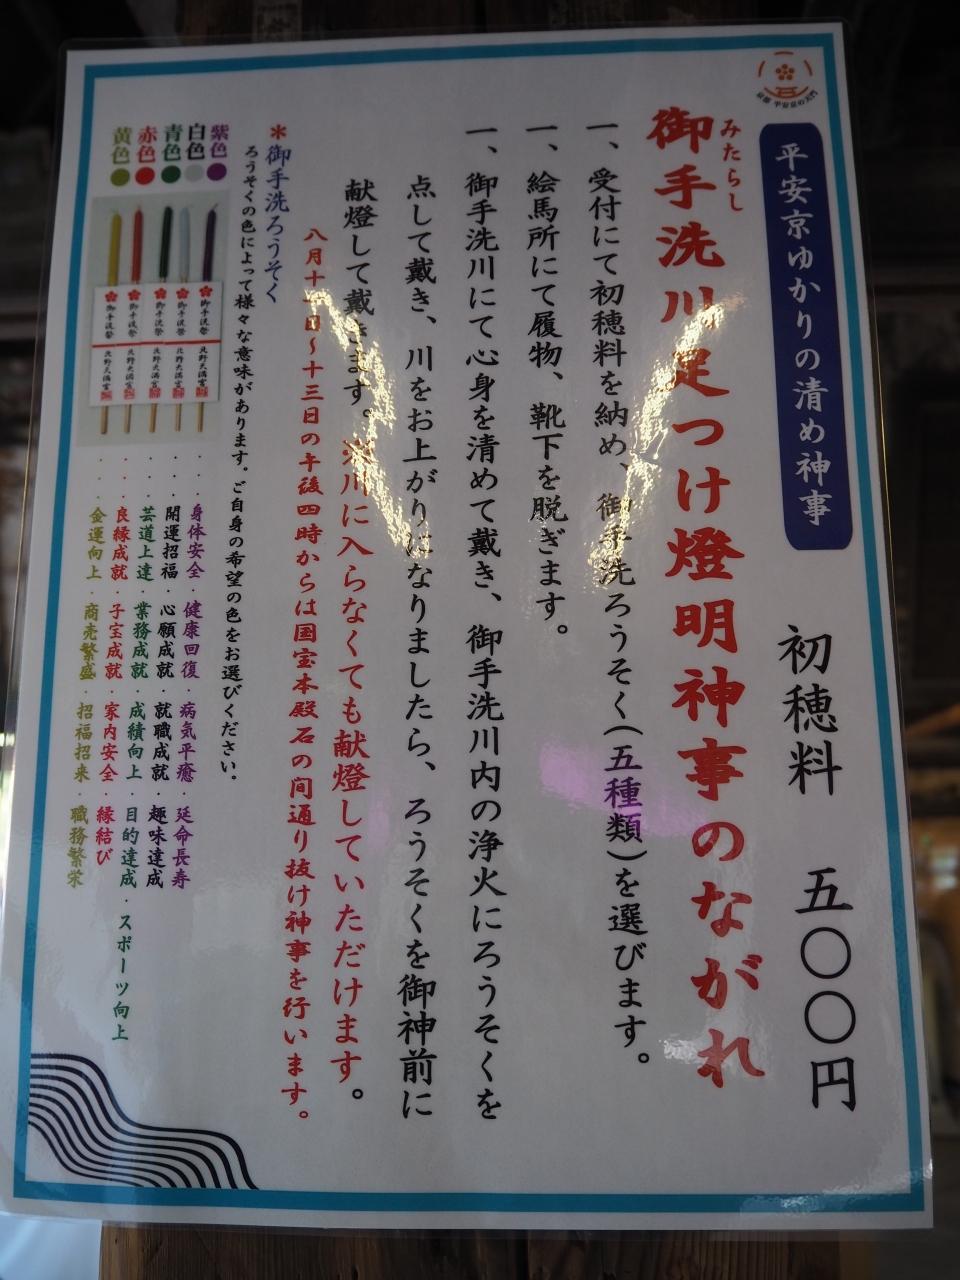 平安京ゆかりの清め神事
初穂料 五〇〇円
みたらし
御手洗川足つけ燈明神事のながれ
一、受付にて初穂料を納め、御手洗ろうそく(五種類)を選びます。
一、絵馬所にて履物、靴下を脱ぎます。
一、御手洗川にて心身を清めて戴き、御手洗川内の浄火にろうそくを
点して戴き、川をお上がりになりましたら、ろうそくを御神前に
献燈して戴きます。※川に入らなくても献燈していただけます。
八月十 日~十三日の午後四時からは国宝本殿石の間通り抜け神事を行います。
*御手洗ろうそく
ろうそくの色によって様々な意味があります。ご自身の希望の色をお選びください。
紫色●・・身体安全・健康回復・病気平癒・延命長寿
白色●・・開運招福・心願成就・就職成就・趣味達成
青色●・・芸道上達・業務成就・成績向上・目的達成・スポーツ向上
赤色●・・良縁成就・子宝成就・家内安全・縁結び
黄色●・・金運向上・商売繁盛・招福招来・職務繁栄
御手洗祭 北野天満宮
御手洗祭 北野天満宮
御手洗祭 北野天満宮
御手洗祭 北野天満宮
御手洗祭 北野天満宮